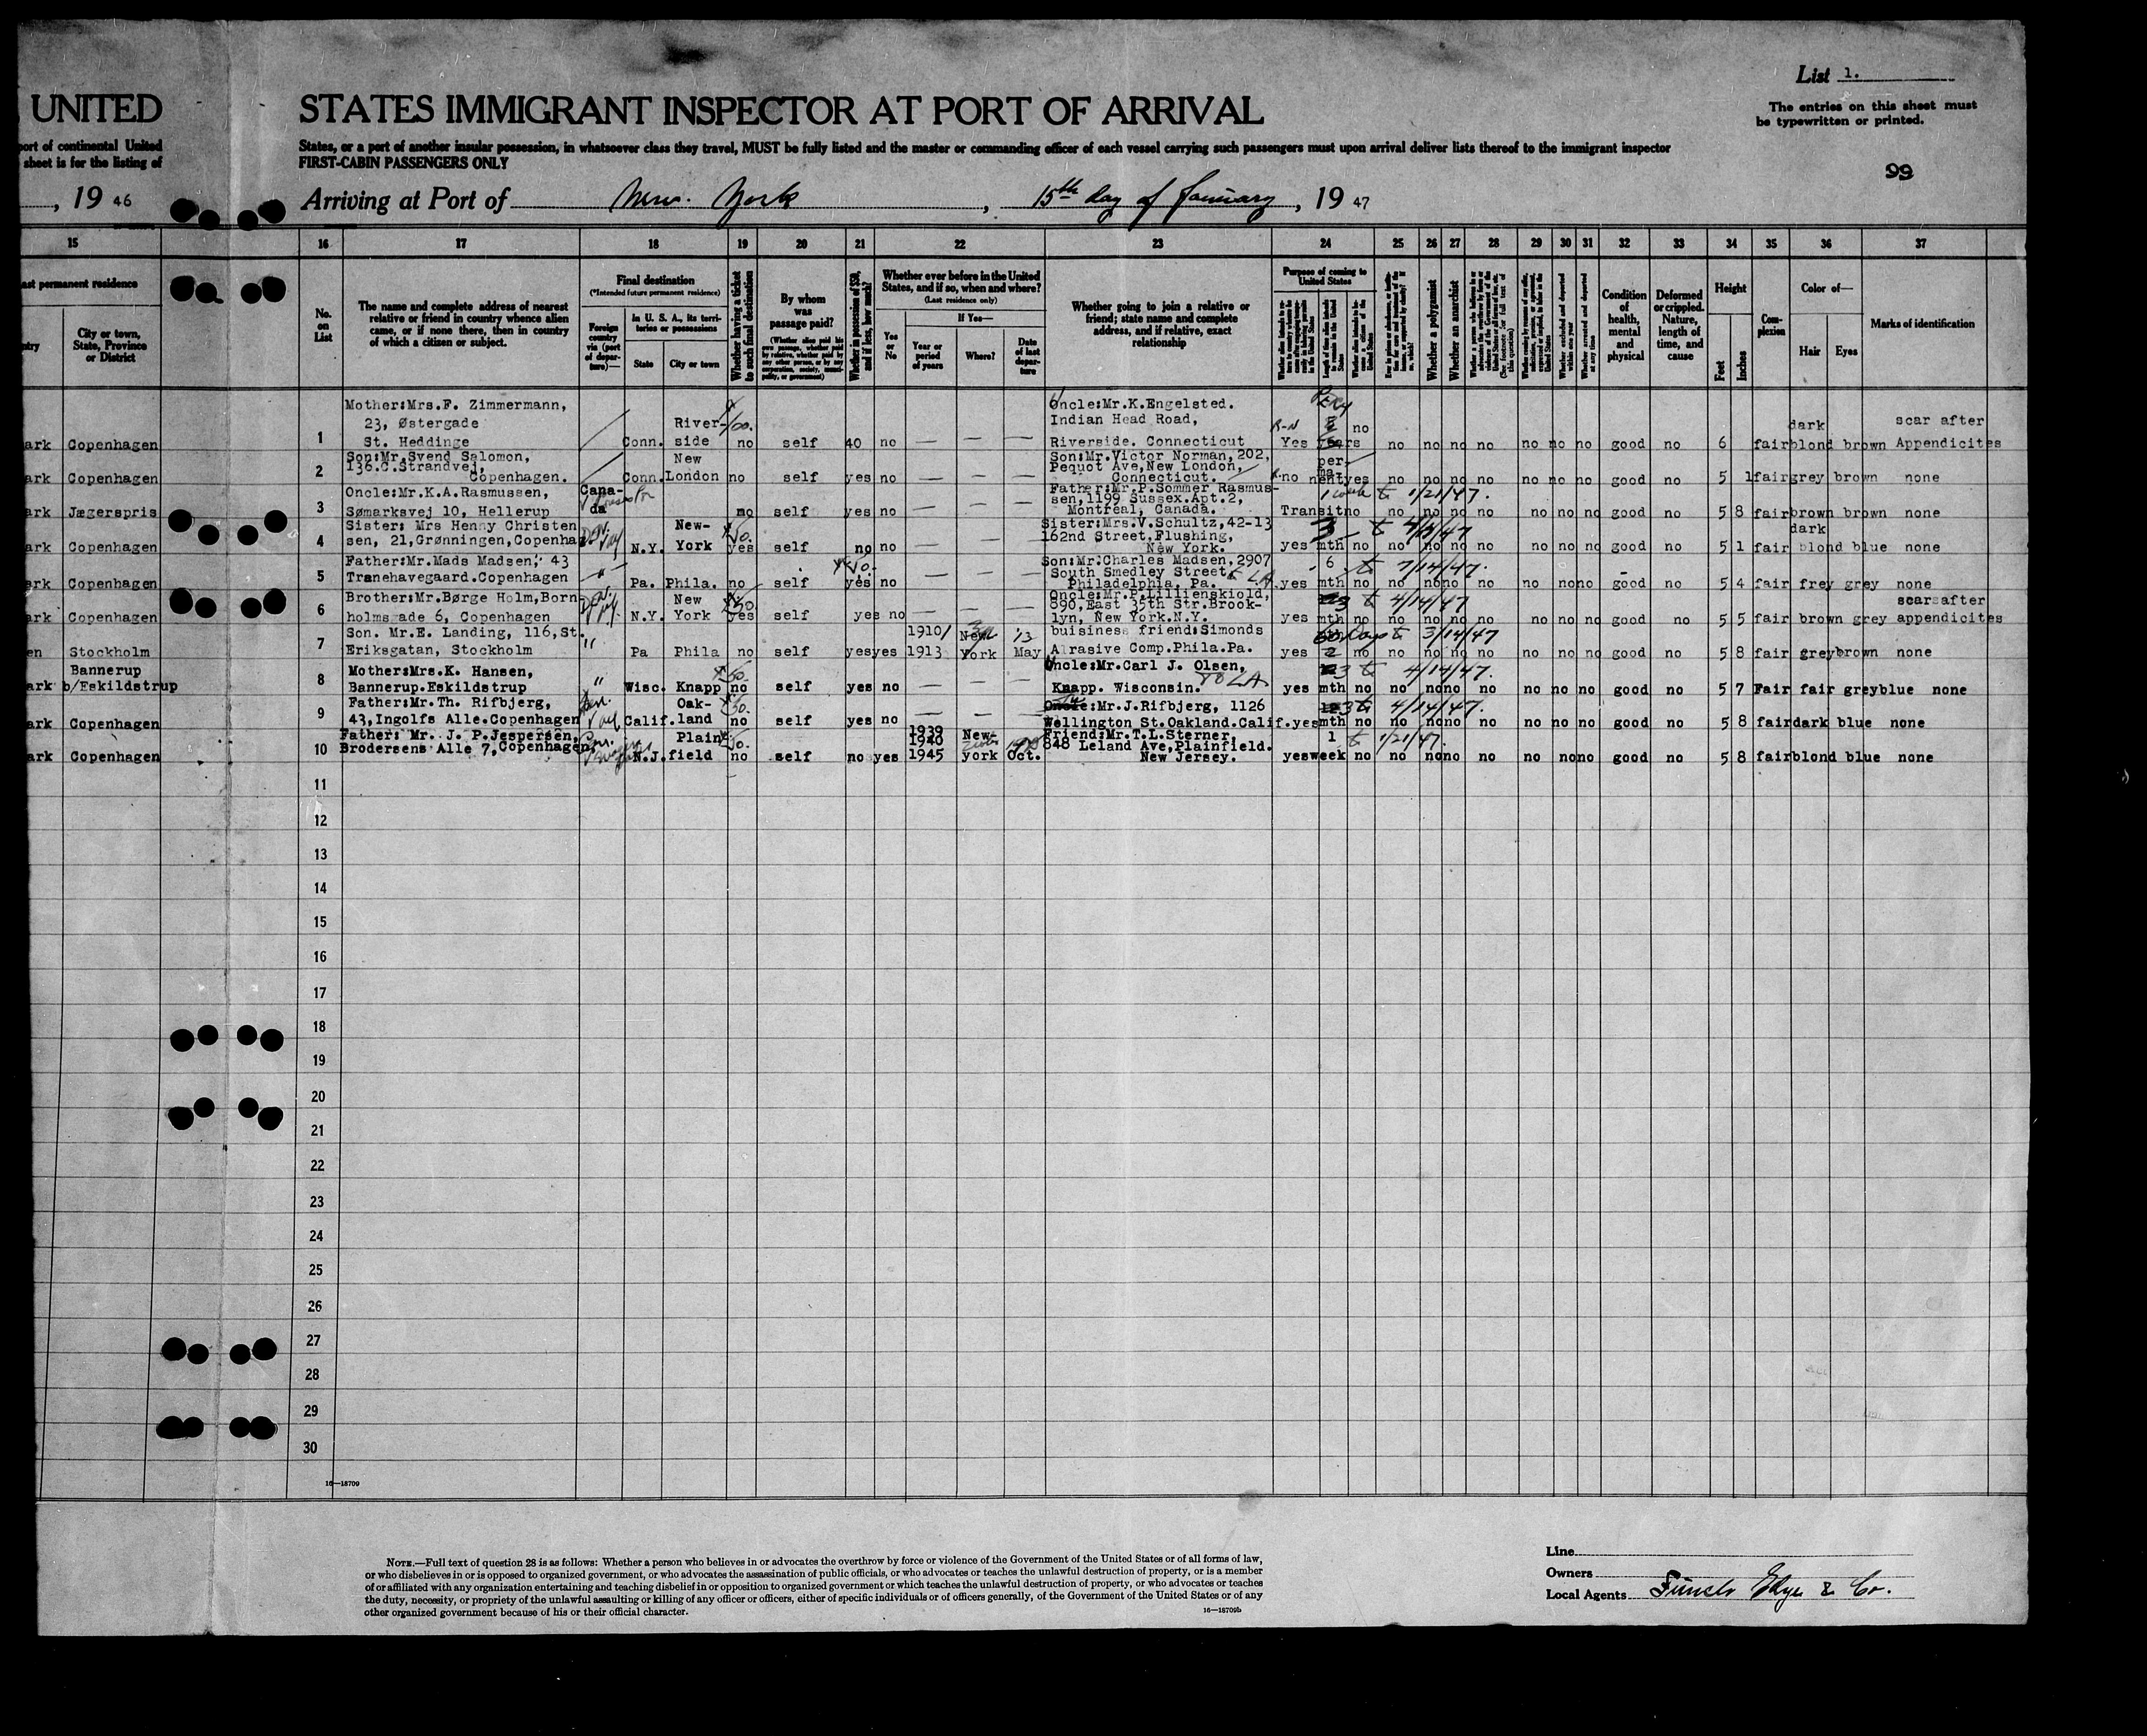 List 1.
UNITED STATES IMMIGRANT INSPECTOR AT PORT OF ARRIVAL
The entries on this sheet must
be typewritten or printed.
port of continental United States, or a port of another insular possession, in whatsoever class they travel, MUST be fully listed and the master or commanding officer of each vessel carrying such passengers must upon arrival deliver lists thereof to the immigrant inspector
sheet is for the listing of FIRST-CABIN PASSENGERS ONLY
99
, 19 46 Arriving at Port of New York, 15th day of January, 19 47
15 16 17 18 19 20 21 22 23 24 25 26 27 28 29 30 31 32 33 34 35 36 37
ast permanent residence
City or town,
State, Province
or District
No.
on
List
The name and complete address of nearest
relative or friend in country whence alien
came, or if none there, then in country
of which a citizen or subject.
Final destination
(*Intended future permanent residence)
Foreign
country
via (port
of depar-
ture)—
In U. S. A., its terri-
tories or possessions
State
City or town
Whether having a ticket
to such final destination
By whom
was
passage paid?
Whether in possession of $50,
and if less, how much?
Whether ever before in the United
States, and if so, when and where?
(Last residence only)
Yes
or
No
If Yes—
Year or
period
of years
Where?
Date
of last
depar-
ture
Whether going to join a relative or
friend; state name and complete
address, and if relative, exact
relationship
Purpose of coming to
United States
Whether a polygamist
Whether an anarchist
Condition
of
health,
mental
and
physical
Deformed
or crippled.
Nature,
length of
time, and
cause
Height
Feet
Inches
Com-
plexion
Color of—
Hair
Eyes
Marks of identification
Mother:Mrs.F. Zimmermann, Uncle:Mr.K.Engelsted.
23, Østergade River- Indian Head Road, no dark scar after
ark Copenhagen 1 St. Heddinge Conn. side no self 40 no — — — Riverside. Connecticut Yes years no no no no no no no good no 6 fair blond brown Appendicites
Son:Mr.Svend Salomon, New Son:Mr.Victor Norman,202,
136.C.Strandvej, Pequot Ave,New London, per-
ark Copenhagen 2 Copenhagen. Conn. London no self yes no — — — Connecticut. no ma nent yes no no no no no no no good no 5 1 fair grey brown none
Oncle:Mr.K.A.Rasmussen, Cana- Father:Mr.P.Sommer Rasmus-
da sen,1199 Sussex.Apt.2, 1 week to 1/21/47.
ark Jægerspris 3 Sømarksvej 10, Hellerup no self yes no — — — Montreal, Canada. Transit no no no no no no no no good no 5 8 fair brown brown none
Sister: Mrs Henny Christen New- Sister:Mrs.V.Schultz,42-13 3 to 4/15/47 dark
ark Copenhagen 4 sen, 21,Grønningen,Copenha N.Y. York yes self no no — — — 162nd Street,Flushing,
New York. yes mth no no no no no no no no good no 5 1 fair blond blue none
Father:Mr.Mads Madsen, 43 Son:Mr.Charles Madsen,2907 6 to 7/14/47.
ark Copenhagen 5 Tranehavegaard.Copenhagen " Pa. Phila. no self yes no — — — South Smedley Street,
Philadelphia, Pa. yes mth no no no no no no no no good no 5 4 fair frey grey none
Brother:Mr.Børge Holm,Born- New Oncle:Mr.P.Lillienskiold, 3 to 4/14/47 scar after
ark Copenhagen 6 holmsgade 6, Copenhagen N.Y. York yes self yes no — — — 390,East 35th Str.Brook-
lyn, New York.N.Y. yes mth no no no no no no no no good no 5 5 fair brown grey appendicites
Son. Mr.E. Landing, 116,St. 1910/ New '13 buisiness friend:Simonds 60 Days to 3/14/47
en Stockholm 7 Eriksgatan, Stockholm " Pa Phila no self yes yes 1913 York May Abrasive Comp.Phila.Pa. yes 2 no no no no no no no no good no 5 8 fair grey brown none
Bannerup Mother:Mrs.K. Hansen, Uncle:Mr.Carl J. Olsen, 3 to 4/14/47.
ark b/Eskildstrup 8 Bannerup.Eskildstrup " Wisc. Knapp no self yes no — — Knapp. Wisconsin. yes mth no no no no no no no no good no 5 7 Fair fair greyblue none
Father:Mr.Th. Rifbjerg, Oak- Oncle:Mr.J.Rifbjerg, 1126 3 to 4/14/47.
ark Copenhagen 9 43,Ingolfs Alle.Copenhagen Calif. land no self yes no — — — Wellington St.Oakland.Calif. yes mth no no no no no no no no good no 5 8 fair dark blue none
Father: Mr. J. P.Jespersen, Plain 1939 Friend:Mr.T.L.Sterner, 1 to 1/21/47.
1940 New- 848 Leland Ave,Plainfield.
ark Copenhagen 10 Brodersens Alle 7,Copenhagen N.J. field no self no yes 1945 york Oct. New Jersey. yes week no no no no no no no no good no 5 8 fair blond blue none
11
12
13
14
15
16
17
18
19
20
21
22
23
24
25
26
27
28
29
30
16—18709
NOTE.—Full text of question 28 is as follows: Whether a person who believes in or advocates the overthrow by force or violence of the Government of the United States or of all forms of law,
or who disbelieves in or is opposed to organized government, or who advocates the assassination of public officials, or who advocates or teaches the unlawful destruction of property, or is a member
of or affiliated with any organization entertaining and teaching disbelief in or opposition to organized government or which teaches the unlawful destruction of property, or who advocates or teaches
the duty, necessity, or propriety of the unlawful assaulting or killing of any officer or officers, either of specific individuals or of officers generally, of the Government of the United States or of any
other organized government because of his or their official character.
16—18709b
Line
Owners
Local Agents Funch Edye & Co.